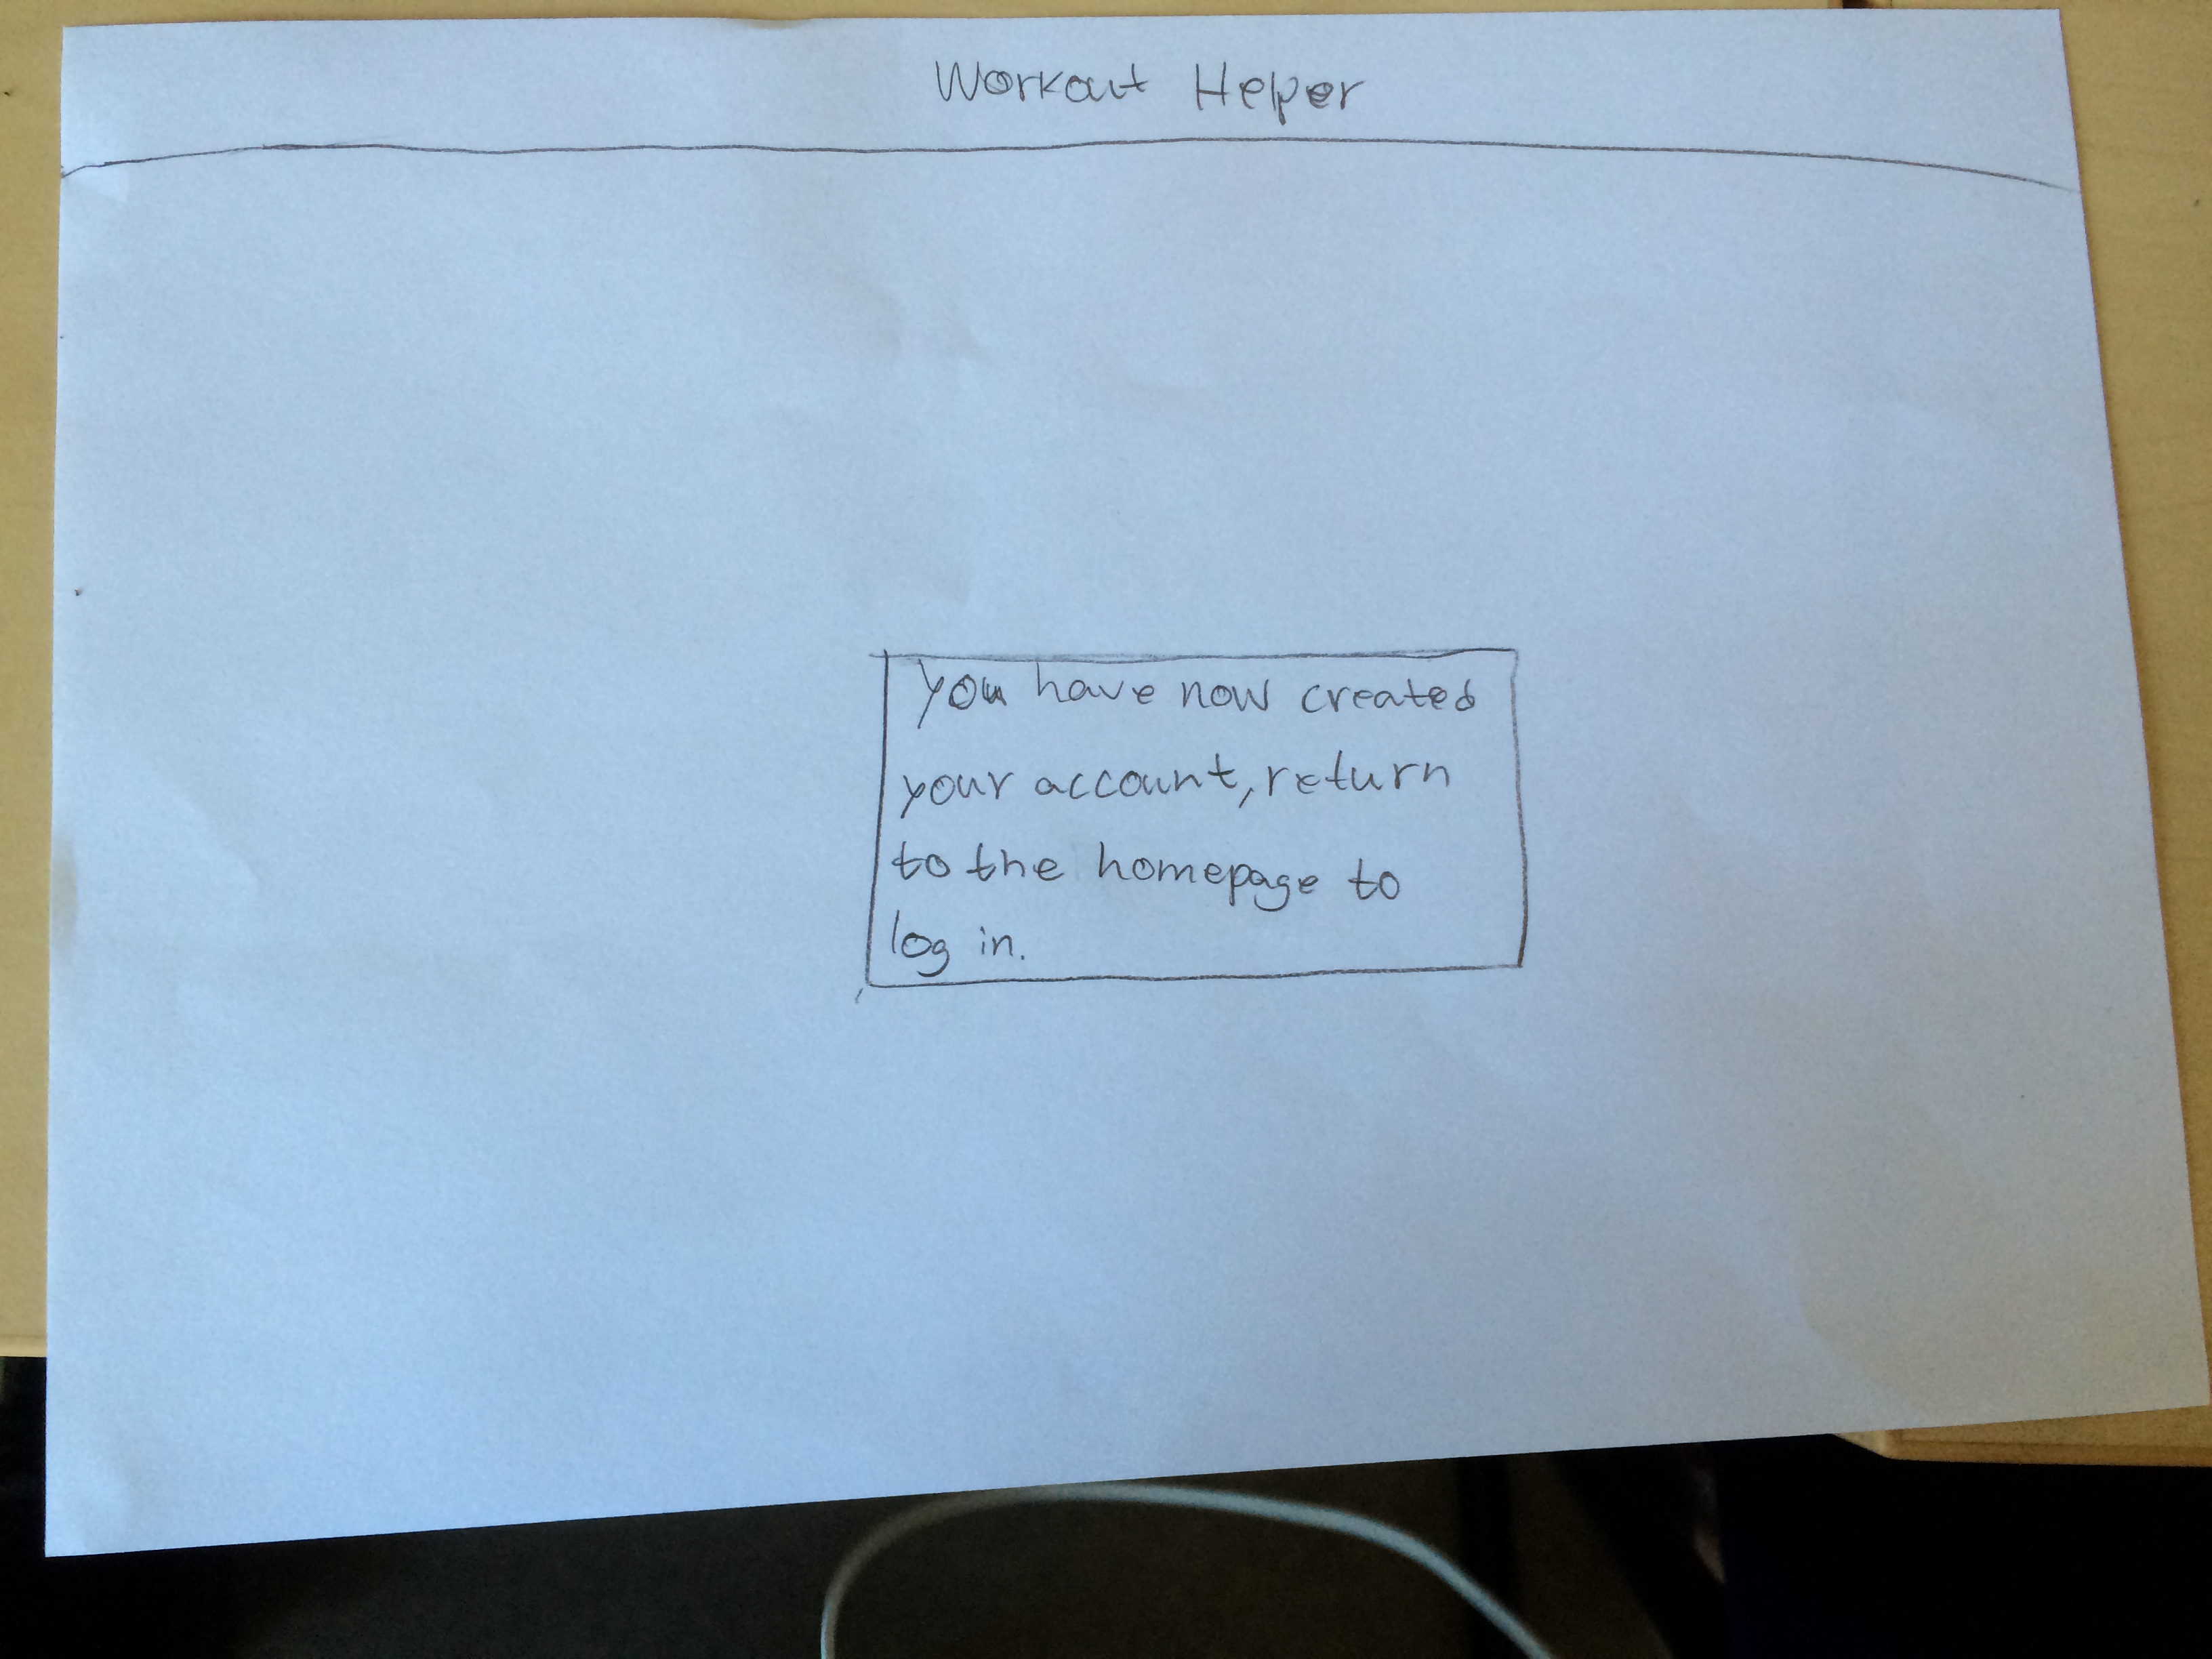 Workout Helper
You have now created
your account, return
to the homepage to
log in.